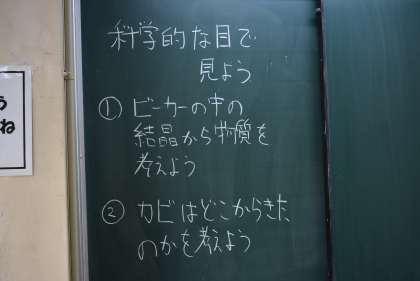 科学的な目で
見よう
① ビーカーの中の
結晶から物質を
考えよう
② カビはどこからきた
のかを考えよう
ね